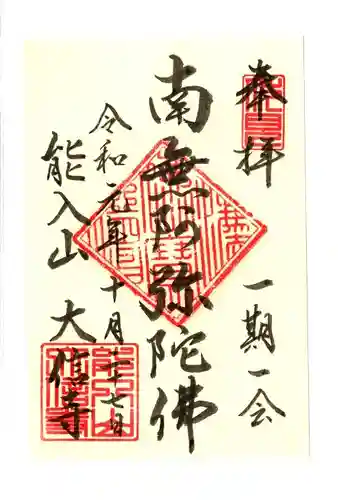 奉拝
一期一会
南無阿弥陀佛
令和元年十月二十七日
能入山 大信寺